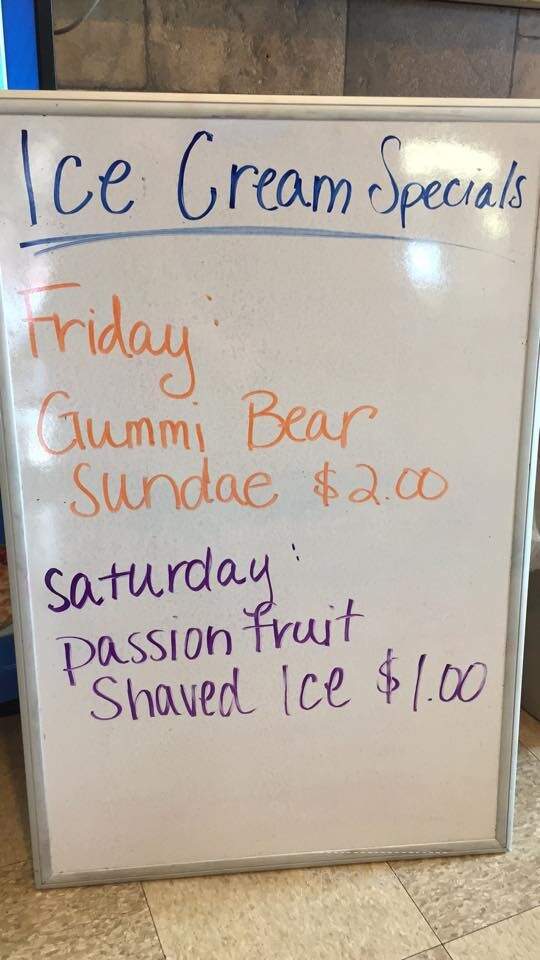 Ice Cream Specials
Friday:
Gummi Bear
Sundae $2.00
Saturday:
passion fruit
Shaved Ice $1.00